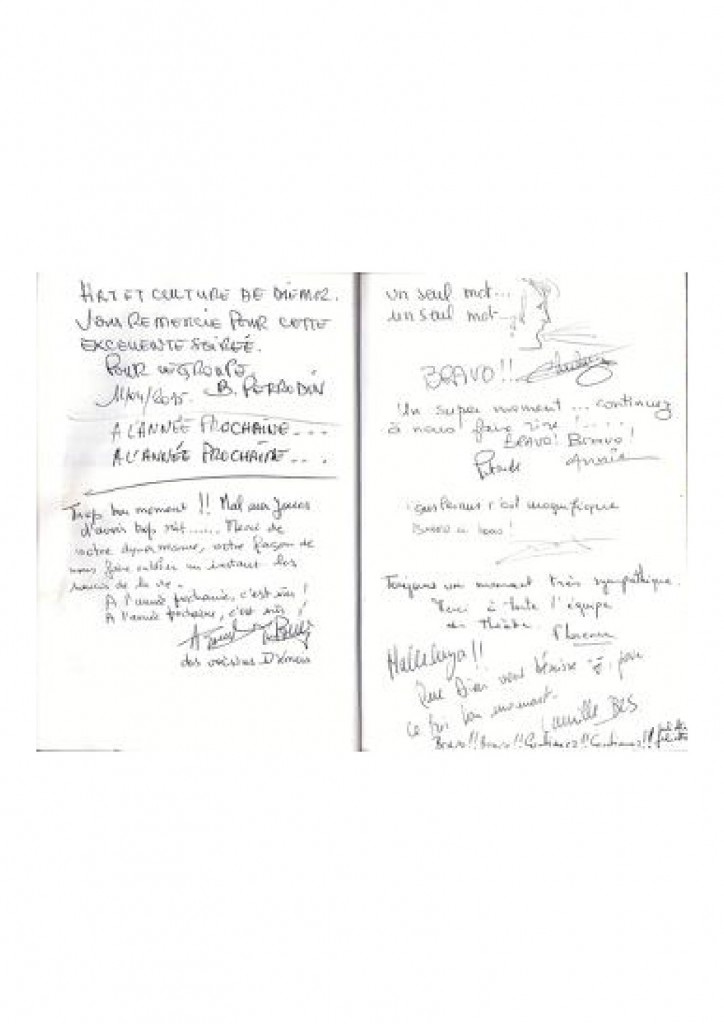 ART ET CULTURE DE DIÉMOZ.
VOUS REMERCIE POUR CETTE
EXCELLENTE SOIREÉ.
POUR LE GROUPE,
B. PERRODIN
A L'ANNÉE PROCHAINE....
A L'ANNÉE PROCHAINE...
Trop bon moment !! Mal aux joues
d'avoir trop rit...... Merci de
votre dynamisme, votre façon de
nous faire oublier un instant les
soucis de la vie.
A l'année prochaine, c'est sûr !
A l'année prochaine, c'est sûr !
des voisins
un seul mot...
un seul mot
BRAVO!!
Un super moment... continuez
à nous faire rire !....
BRAVO! BRAVO!
Annie
c'est magnifique
Toujours un moment très sympathique.
Merci à toute l'équipe
du Théâtre. Florence
Halleluya!!
Que Dieu vous bénisse pour
ce bon moment.
Camille
Bravo!! Bravo!! Continuez!! Continuez!!